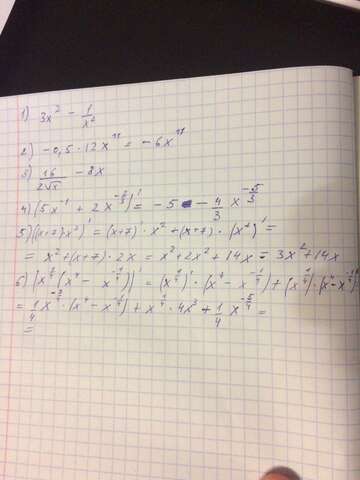 1) 3x² - 1/x²
2) -0,5 · 12x¹¹ = -6x¹¹
3) 16/(2√x) - 8x
4) (5x⁻¹ + 2x^(-2/3))' = -5 - 4/3 x^(-5/3)
5) ((x+7)x²)' = (x+7)' · x² + (x+7) · (x²)' =
= x² + (x+7) · 2x = x² + 2x² + 14x = 3x² + 14x
6) (x^(1/4)(x⁴ - x^(-1/4)))' = (x^(1/4))' · (x⁴ - x^(-1/4)) + (x^(1/4)) · (x⁴ - x^(-1/4))'
= 1/4 x^(-3/4) · (x⁴ - x^(-1/4)) + x^(1/4) · 4x³ + 1/4 x^(-5/4) =
=